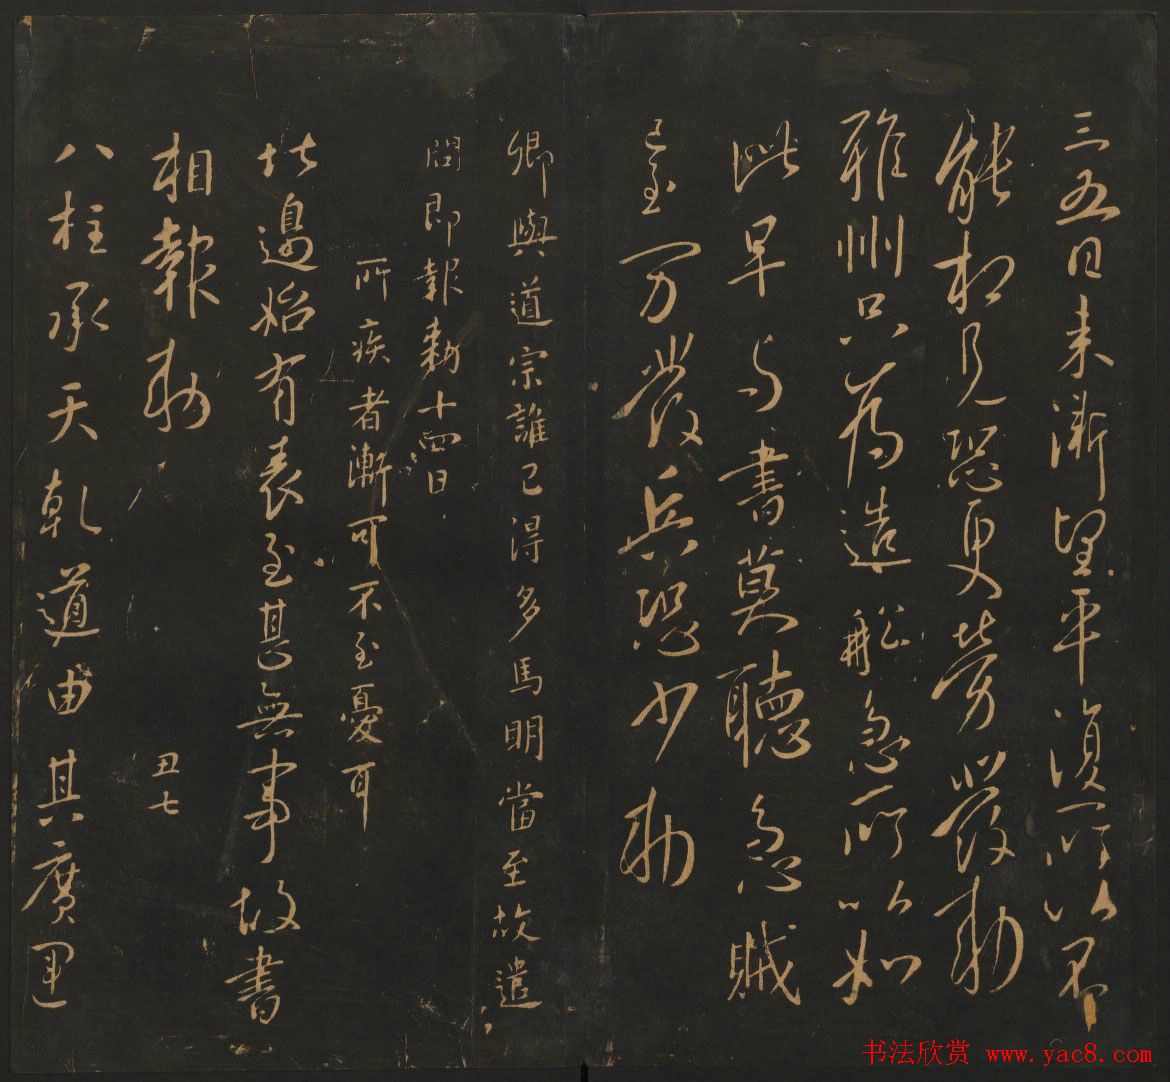 三五日来漸望平復所以不
能相見恐更勞發勅
雅州只為造舩急所以如
此早与書莫聽急賊
已至万發兵恐少勅
卿與道宗誰已得多馬明當至故遣
問即報勅十四日
所疾者漸可不至憂耳
比邊始有表至甚無事故書
相報勅
丑七
八柱承天乾道由其廣運
书法欣赏 www.yac8.com